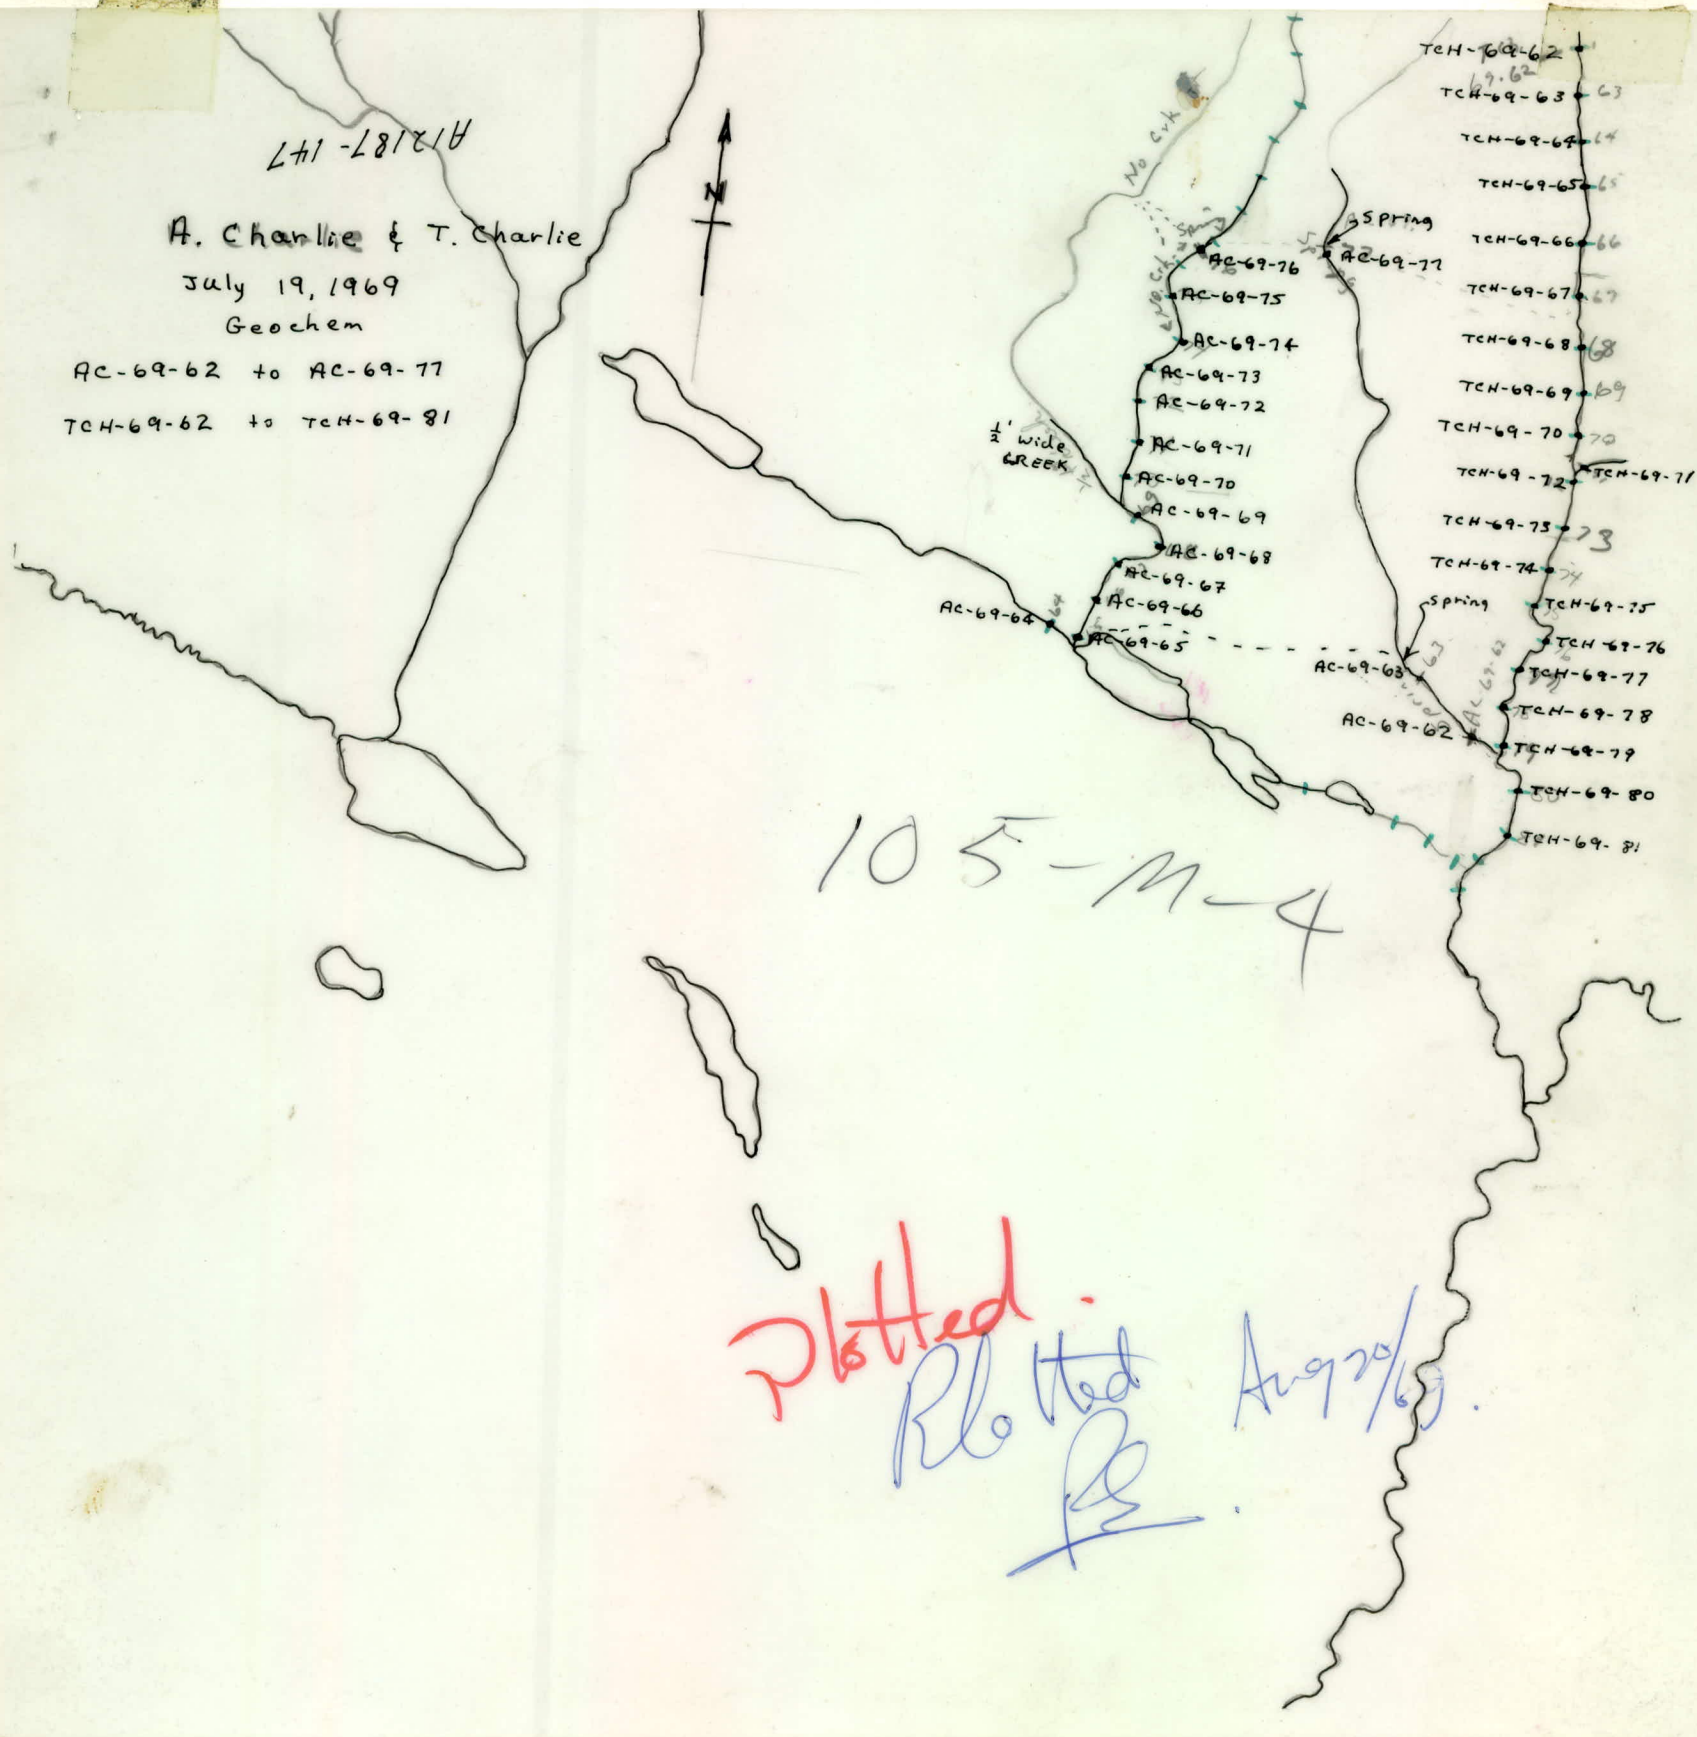 A12187-147
A. Charlie & T. Charlie
July 19, 1969
Geochem
AC-69-62 to AC-69-77
TCH-69-62 to TCH-69-81
N
No Crk
Spring
No Crk
AC-69-76
AC-69-75
AC-69-74
AC-69-73
AC-69-72
AC-69-71
AC-69-70
AC-69-69
AC-69-68
AC-69-67
AC-69-66
AC-69-65
AC-69-64
64
½' wide
CREEK
Spring
AC-69-77
Spring
AC-69-63
63
AC-69-62
AC-69-62
TCH-69-62
69-62
TCH-69-63 63
TCH-69-64 64
TCH-69-65 65
TCH-69-66 66
TCH-69-67 67
TCH-69-68 68
TCH-69-69 69
TCH-69-70 70
TCH-69-71
TCH-69-72
TCH-69-73 73
TCH-69-74 74
TCH-69-75
TCH-69-76
TCH-69-77
TCH-69-78
TCH-69-79
TCH-69-80
TCH-69-81
105-M-4
Plotted.
Plotted Aug 20/69.